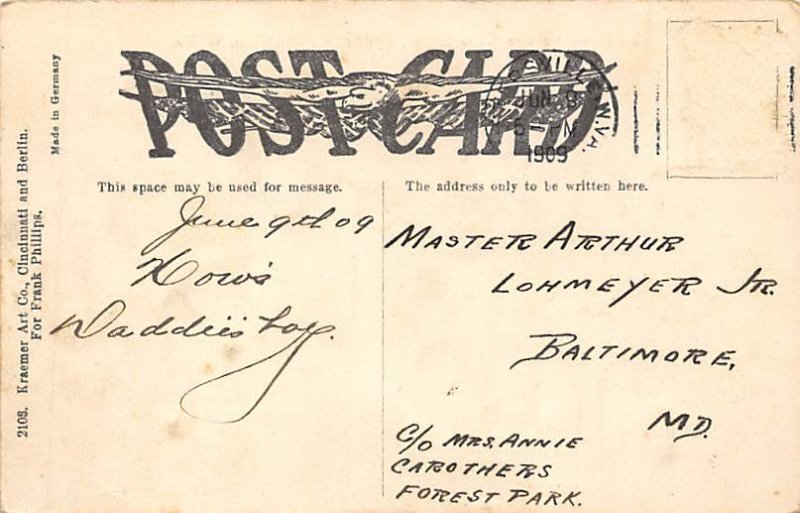 POST CARD
VILLE W.VA.
JUN 9
5 PM
1909
This space may be used for message.
The address only to be written here.
June 9th 09
How's
Daddie's boy.
Master Arthur
Lohmeyer Jr.
Baltimore,
Md.
c/o Mrs. Annie
Carothers
Forest Park.
Made in Germany
2108. Kraemer Art Co., Cincinnati and Berlin.
For Frank Phillips.